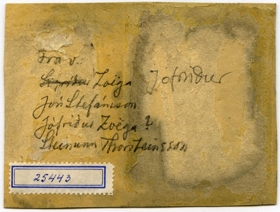 Frá v.
Zoëga Jófríður
Jón Stefánsson
Jófríður Zoëga?
Steinunn Thorsteinsson
25443